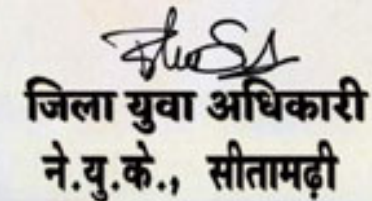 जिला युवा अधिकारी
ने.यु.के., सीतामढ़ी